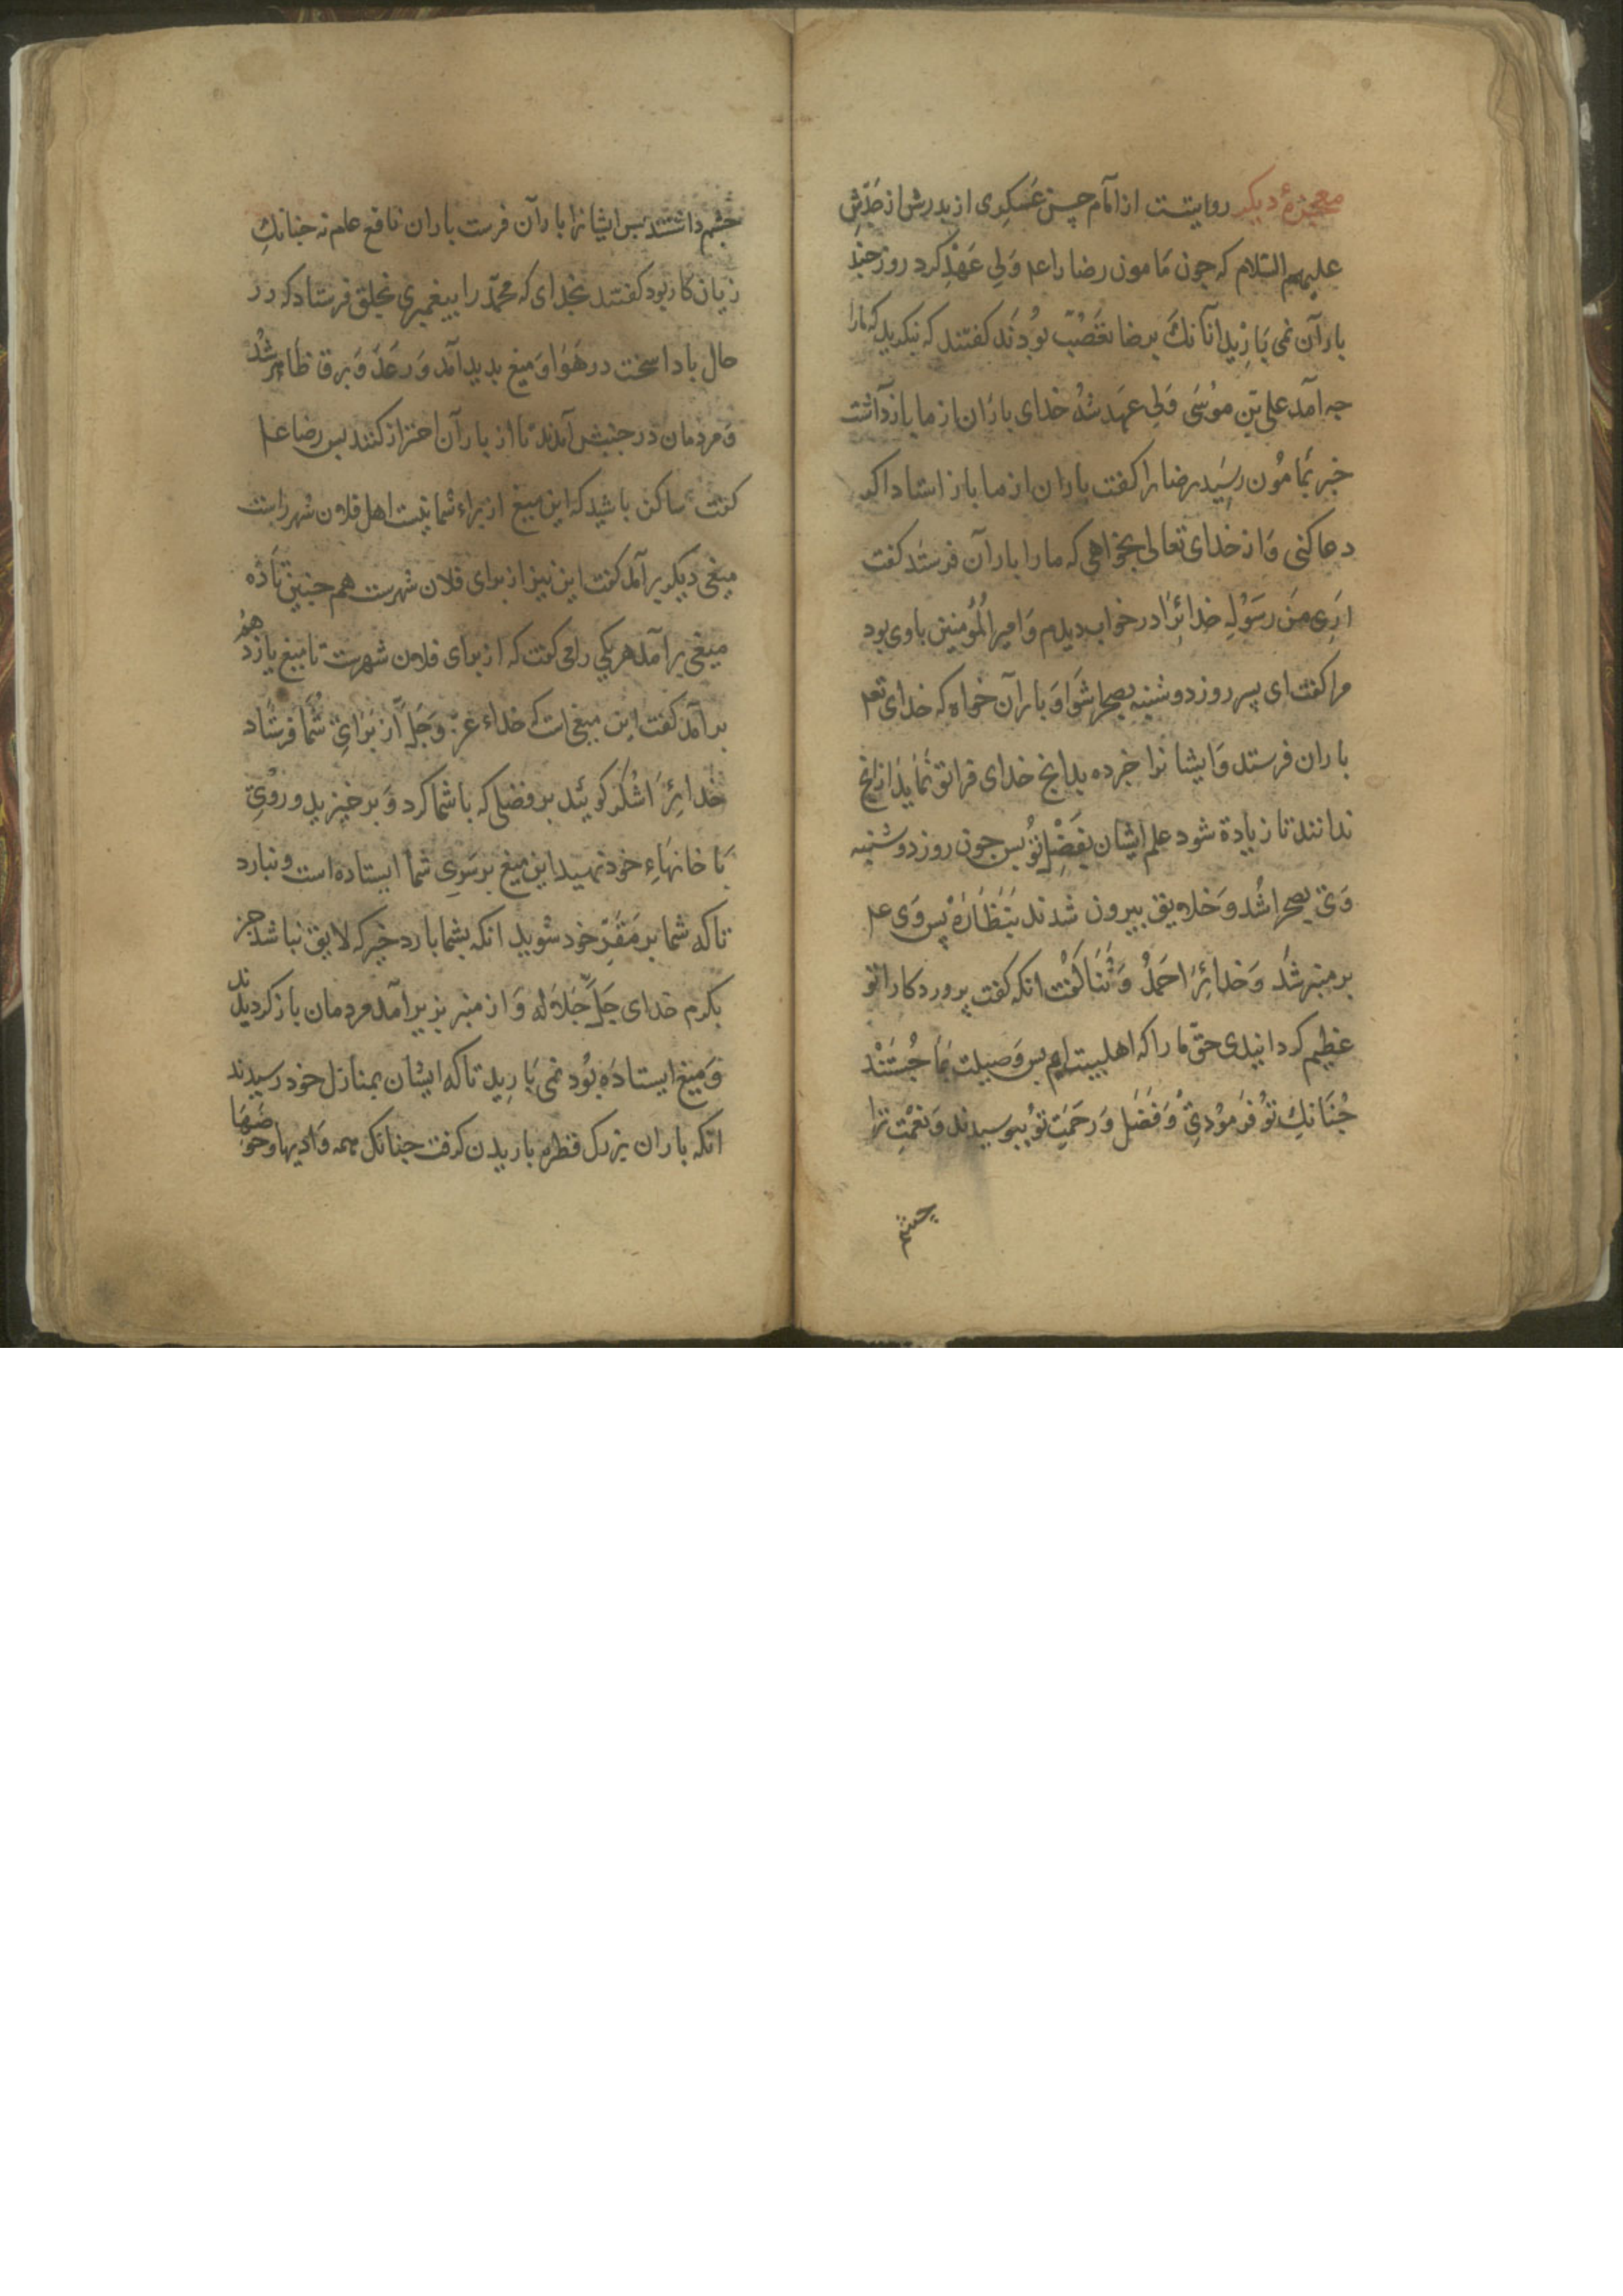 معجزهٔ دیکر روایتست از امام حسن عسکری از بدرش از جدّش
علیهم السّلام که جون مامون رضا را عم ولی عهد کرد روز جند
باران نمی بارید آنانک بر رضا تعصّب بودند کفتند که بنکرید که مارا
جه آمد علی بن موسی ولی عهد شد خدای باران از ما بازداشت
خبر بمامون رسید رضا را کفت باران از ما باز استاد اکر
دعا کنی و از خدای تعالی بخواهی که ما را باران فرستد کفت
اری من رسول خدائرا در خواب دیدم و امیر المؤمنین با وی بود
مرا کفت ای پسر روز دوشنبه بصحرا شو و باران خواه که خدای تعم
باران فرستد و ایشانرا خبر ده بدانج خدای فرا تو نماید از انج
ندانند تا زیادة شود علم ایشان بفضل تو بس جون روز دوشنبه
وی بصحرا شد و خلایق بیرون شدند بنظاره پس وی عم
بر منبر شد و خدائرا حمد و ثنا کفت انکه کفت پروردکارا تو
عظیم کردانیدی حق ما را که اهلبیت ایم بس وصیلت بما جستند
جنانک تو فرمودی و فضل و رحمت تو ببوسیدند و نعمت ترا
چشم
جشم داشتند بس ایشانرا باران فرست باران نافع عام نه جنانک
زیان کار بود کفتند بخدای که محمّد را بیغمبری بخلق فرستاد که در
حال بادا سخت در هوا و میغ بدید آمد و رعد و برق ظاهر شد
و مردمان در جنبش آمدند تا از باران احتراز کنند بس رضا عم
کفت ساکن باشید که این میغ از براء شما نیست اهل فلان شهر راست
میغی دیکر بر آمد کفت این نیز از برای فلان شهرست هم جنین تا ده
میغ بر آمد هر یکی را می کفت که از برای فلان شهرست تا میغ یازدهم
بر آمد کفت این میغی است که خداء عزّ و جلّ از برای شما فرستاد
خدائرا شکر کوئید بر فضلی که با شما کرد و بر خیزید و روی
با خانهاء خود نهید این میغ بر سوی شما ایستاده است و نبارد
تا که شما بر مقرّ خود شوید انکه بشما بارد خیر که لایق نباشد جز
بکرم خدای جلّ جلاله و از منبر بزیر آمد مردمان باز کردیدند
و میغ ایستاده بود نمی بارید تا که ایشان بمنازل خود رسیدند
انکه باران بزرک قطره باریدن کرفت جنانک همه وادیها و حوضها